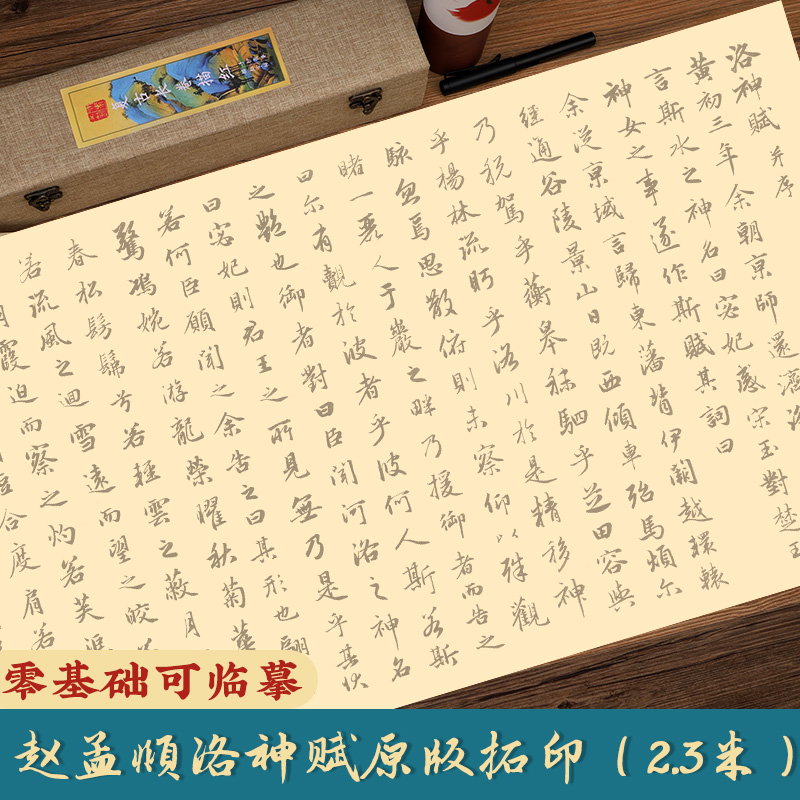 复古长卷描红
洛神賦 并序
黃初三年余朝京師還濟洛
言斯水之神名曰宓妃感宋玉對楚王
神女之事遂作斯賦其詞曰
余從京域言歸東藩背伊闕越轘轅
經通谷陵景山日既西傾車殆馬煩尔
乃稅駕乎蘅皋秣駟乎芝田容與
乎楊林流眄乎洛川於是精移神
駭忽焉思散俯則未察仰以殊觀
睹一麗人于巖之畔乃援御者而告之
曰尔有覿於彼者乎彼何人斯若斯
之豔也御者對曰臣聞河洛之神名
曰宓妃則君王之所見無乃是乎其狀
若何臣願聞之余告之曰其形也翩
驚鴻婉若游龍榮耀秋菊華
春松髣髴兮若輕雲之蔽月
若流風之迴雪遠而望之皎
霞迫而察之灼若芙
合度肩若
零基础可临摹
赵孟頫洛神赋原版拓印（2.3米）